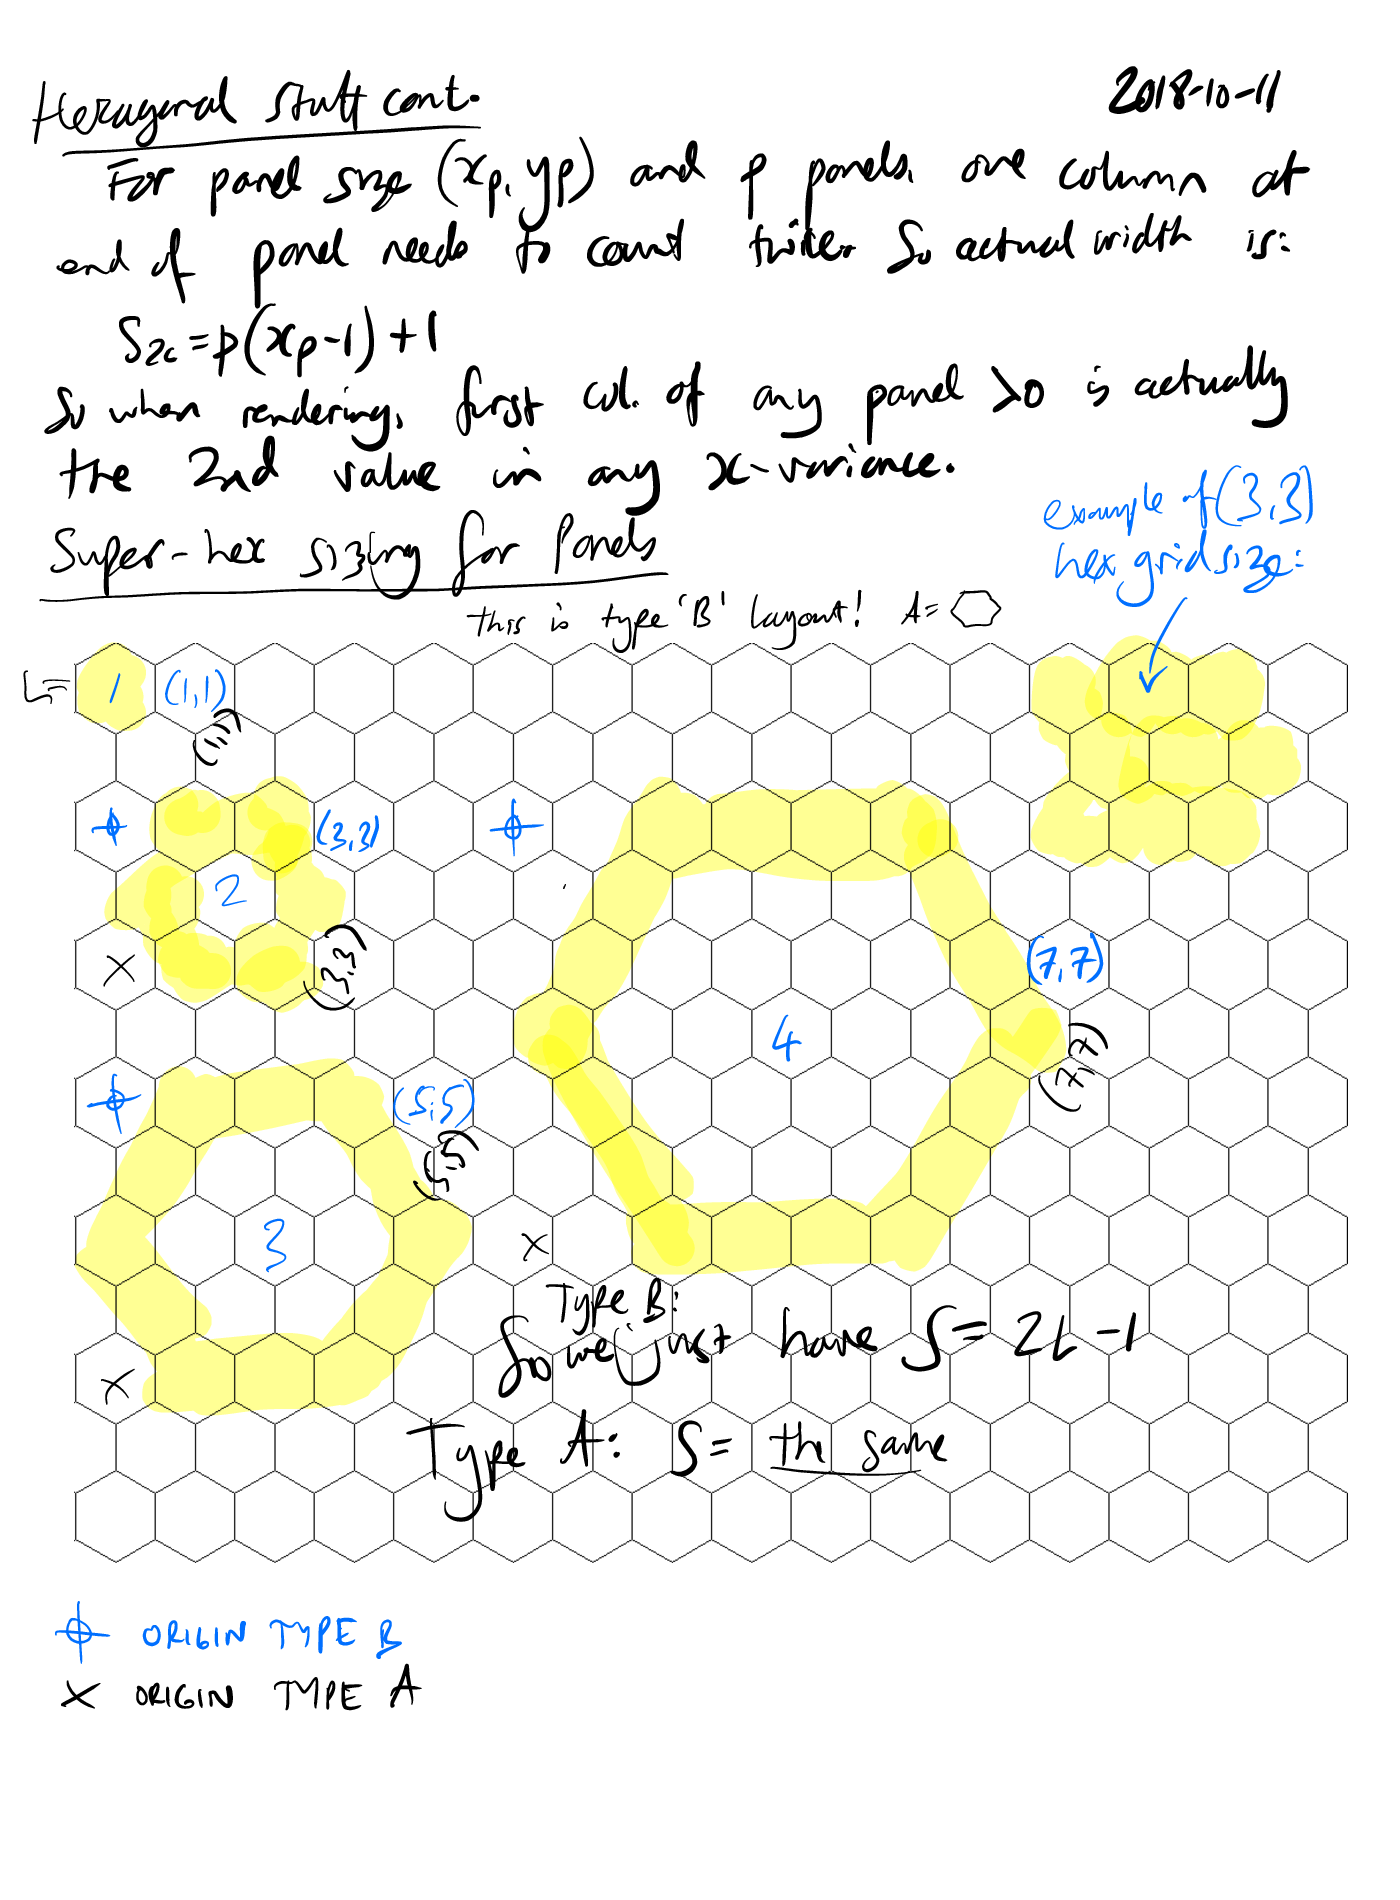 Hexagonal stuff cont.
2018-10-11
For panel size (xp, yp) and p panels, one column at
end of panel needs to count twice. So actual width is:
S2c = p(xp-1)+1
So when rendering, first col. of any panel >0 is actually
the 2nd value in any x-variance.
example of (3,3)
hex grid size:
Super-hex sizing for Panels
this is type 'B' layout! A=
L=
1 (1,1)
(1,1)
(3,3)
2
(3,3)
(7,7)
4
(7,7)
(5,5)
(5,5)
3
Type B:
So we just have S = 2L-1
Type A: S = the same
ORIGIN TYPE B
X ORIGIN TYPE A